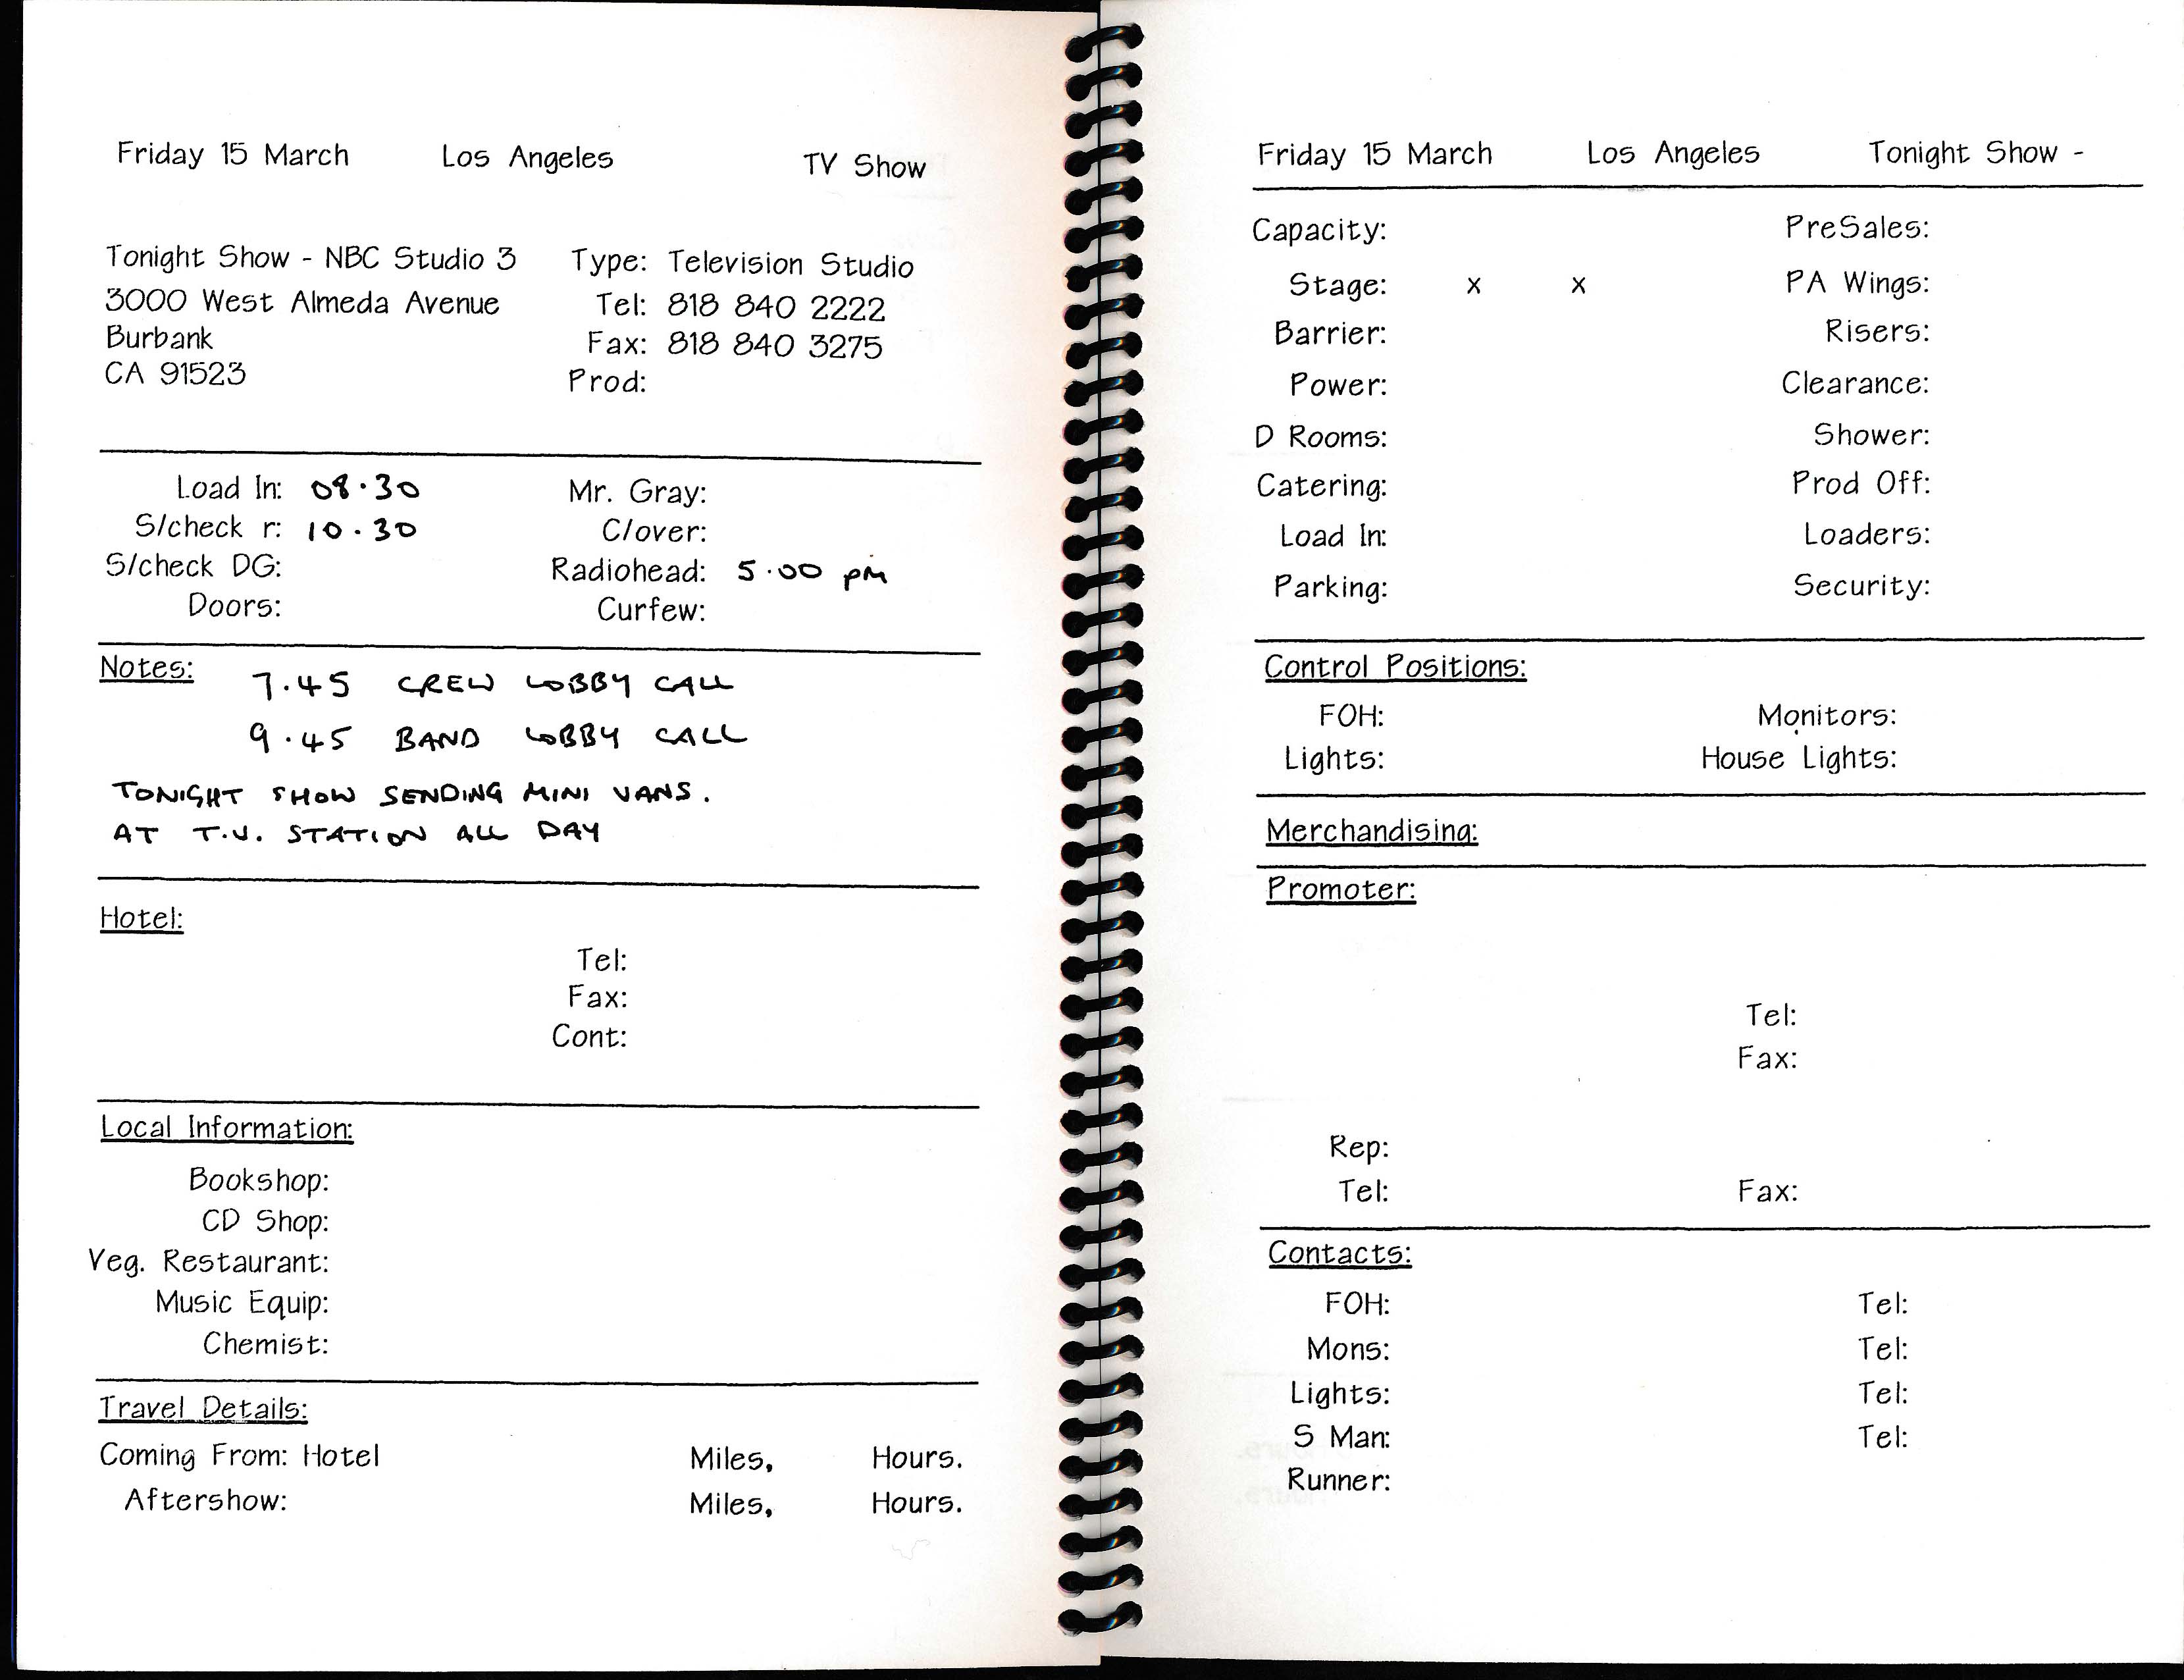 Friday 15 March Los Angeles TV Show
Tonight Show - NBC Studio 3
3000 West Almeda Avenue
Burbank
CA 91523
Type: Television Studio
Tel: 818 840 2222
Fax: 818 840 3275
Prod:
Load In: 08.30
S/check r: 10.30
S/check DG:
Doors:
Mr. Gray:
C/over:
Radiohead: 5.00 pm
Curfew:
Notes: 7.45 CREW LOBBY CALL
9.45 BAND LOBBY CALL
TONIGHT SHOW SENDING MINI VANS.
AT T.V. STATION ALL DAY
Hotel:
Tel:
Fax:
Cont:
Local Information:
Bookshop:
CD Shop:
Veg. Restaurant:
Music Equip:
Chemist:
Travel Details:
Coming From: Hotel Miles, Hours.
Aftershow: Miles, Hours.
Friday 15 March Los Angeles Tonight Show -
Capacity: PreSales:
Stage: x x PA Wings:
Barrier: Risers:
Power: Clearance:
D Rooms: Shower:
Catering: Prod Off:
Load In: Loaders:
Parking: Security:
Control Positions:
FOH: Monitors:
Lights: House Lights:
Merchandising:
Promoter:
Tel:
Fax:
Rep:
Tel: Fax:
Contacts:
FOH: Tel:
Mons: Tel:
Lights: Tel:
S Man: Tel:
Runner: